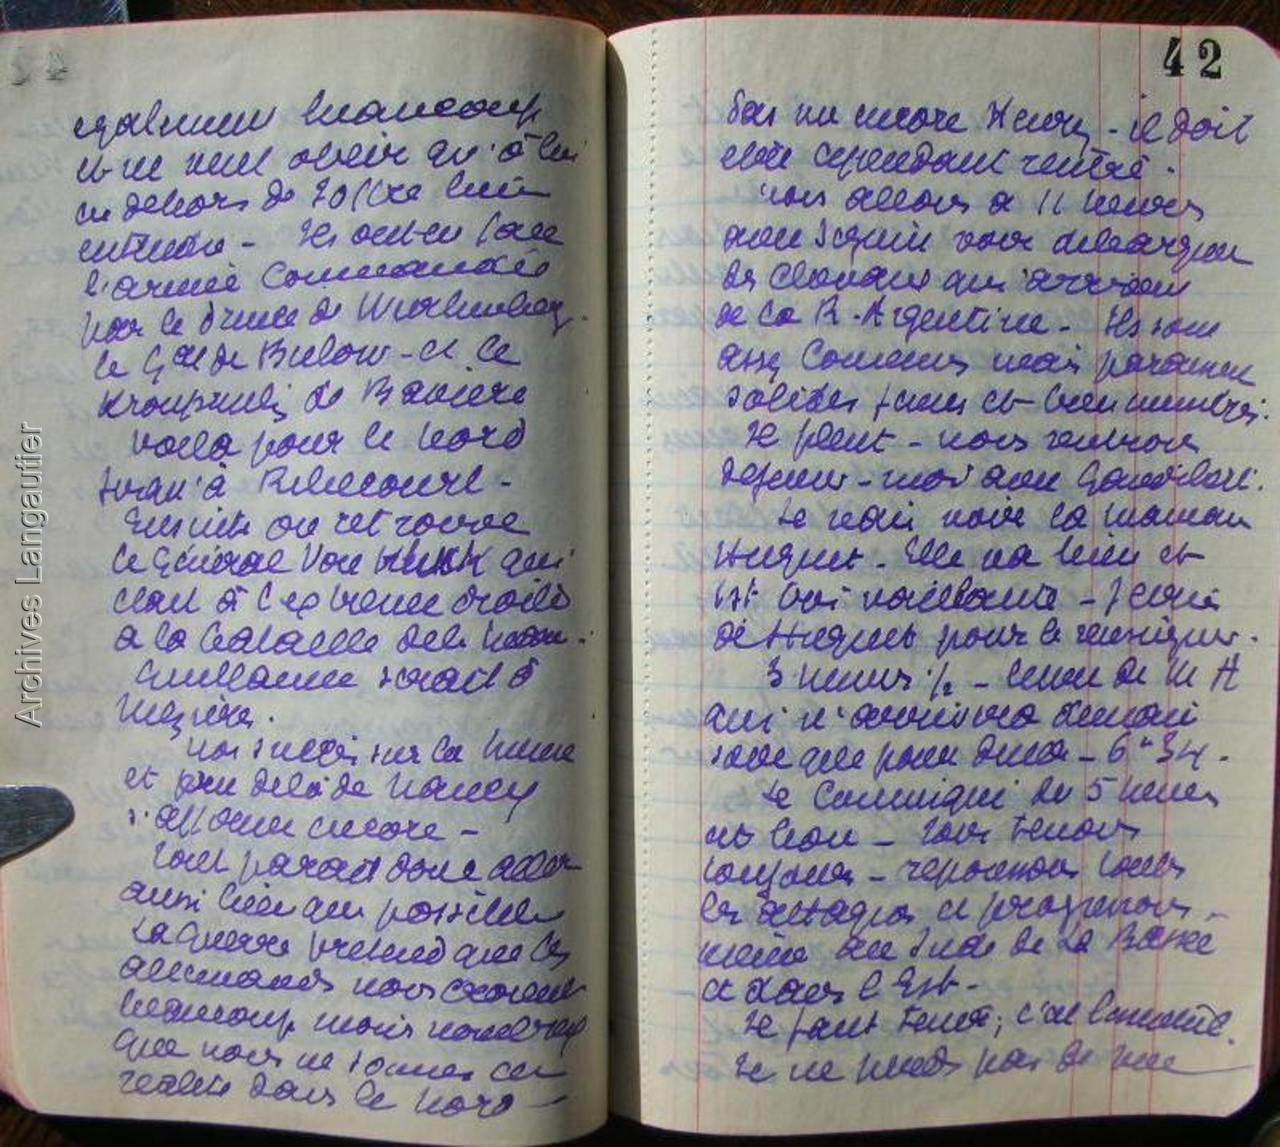 également beaucoup
et ne veut obéir qu'à lui
en dehors de Joffre bien
entendu - Ils ont en face
l'armée commandée
par le Prince de Wurtemberg.
le Gal de Bulow - et le
Kronprintz de Bavière
Voilà pour le Nord
jusqu'à Ribecourt -
Ensuite on retrouve
le Général Von Kluck qui
était à l'extrême droite
à la bataille de la Marne.
Guillaume serait à
Mézières.
Nos succès sur la Meuse
et près delà de Nancy
s'affirme encore -
Tout parait donc aller
aussi bien que possible
La Guerre prétend que les
allemands nous
beaucoup mais
que nous ne sommes en
réalité dans le Nord -
42
pas vu encore Henry - il doit
être cependant rentré.
Nous allons à 11 heures
avec voir débarquer
des chevaux qui arrivent
de la R. Argentine - Ils sont
assez communs mais paraissent
solides jeunes et bien membrés.
Il pleut - nous rentrons
déjeuner - moi avec
Je vais voir la maman
Huguet - Elle va bien et
est très vaillante - J'écris
à Huguet pour le renseigner.
3 heures 1/2 - lettre de M A
qui n'arrivera demain
soir que pour diner - 6h 34.
Le Communiqué de 5 heures
est bon - nous tenons
toujours - repoussons toutes
les attaques et progressons -
même au Sud de La Bassée
et dans l'Est -
Il faut tenir, c'est l'
Je ne perds pas de vue
Archives Langautier